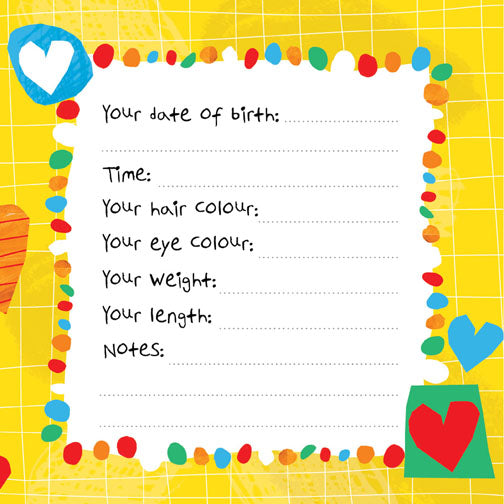 Your date of birth:
Time:
Your hair colour:
Your eye colour:
Your weight:
Your length:
Notes: